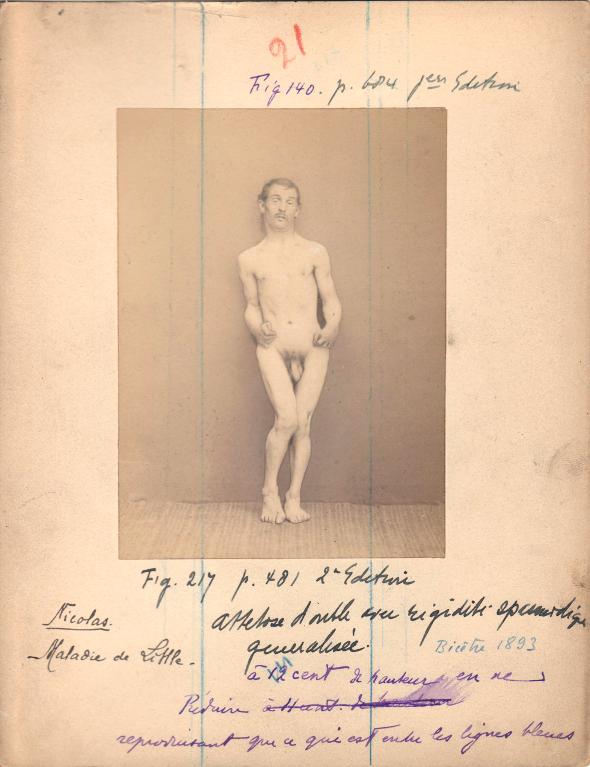 21
Fig 140. p. 684 1ere Edition
Fig. 217 p. 481 2e Edition
Nicolas.
Athetose double avec rigidité spasmodique
Maladie de Little.
généralisée.
Bicêtre 1893
à 12 cent de hauteur en ne
Réduire
reproduisant que ce qui est entre les lignes bleues